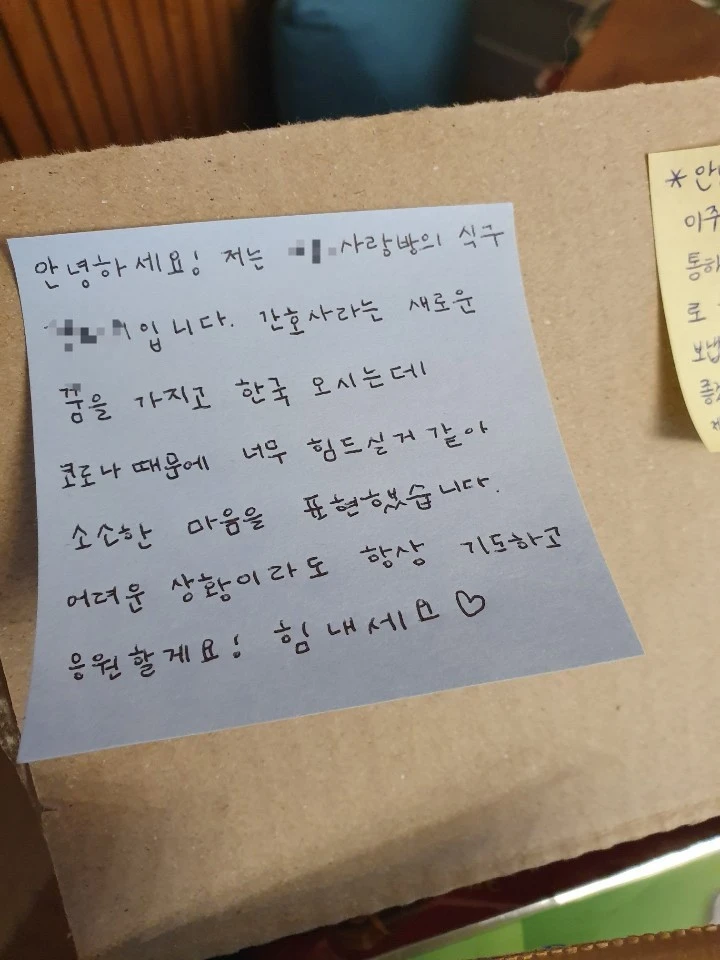 안녕하세요! 저는 사랑방의 식구
입니다. 간호사라는 새로운
꿈을 가지고 한국 오시는데
코로나 때문에 너무 힘드실거 같아
소소한 마음을 표현해봤습니다.
어려운 상황이라도 항상 기도하고
응원할게요! 힘내세요♡
* 안
이주
통하
로
보냅